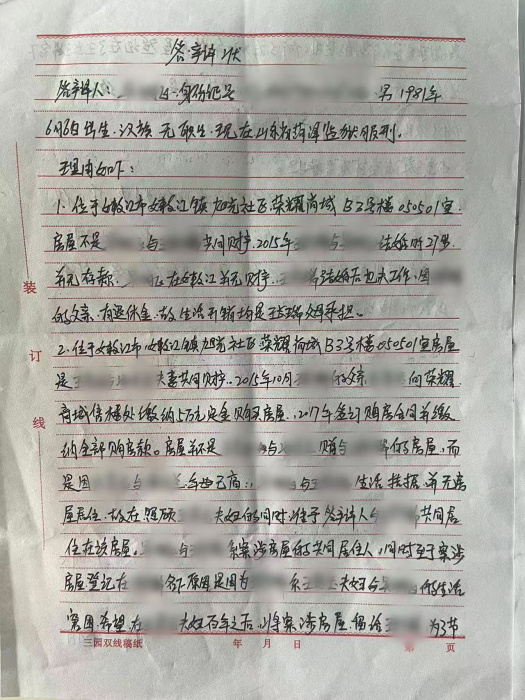 答辩状
答辩人： 身份证号 男 1981年
6月6日出生.汉族 无职业.现在山东省菏泽监狱服刑.
理由如下：
1.位于嫩江市嫩江镇旭光社区荣耀商城B3号楼050501室.
房屋不是 与 共同财产.2015年 与 结婚时27岁.
装
并无存款. 在嫩江并无财产. 结婚后也未工作.因
的父亲.有退休金.故生活开销均是 承担。
订
2.位于嫩江市嫩江镇旭光社区荣耀商城B3号楼050501室房屋
是 夫妻共同财产.2015年10月 的父亲 向荣耀
线
商城售楼处缴纳5万元定金购买房屋.2017年签订购房合同并缴
纳全部购房款。房屋并不是 与 赠与 的房屋,而
是因 与 与 生活拮据.并无房
屋居住.故在照顾 夫妇的同时.准予答辩人与 共同居
住在该房屋. 与 系案涉房屋的共同居住人.同时至于案涉
房屋登记在 名下原因是因为 系 夫妇 的生活
窘困.希望在 夫妇百年之后.将案涉房屋.留给 为了节
三园双线稿纸 年 月 日 第 页